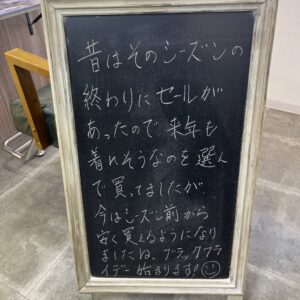 昔はそのシーズンの
終わりにセールが
あったので、来年も
着れそうなのを選ん
で買ってましたが
今はシーズン前から
安く買えるようになり
ましたね。ブラックフラ
イデー始まります!